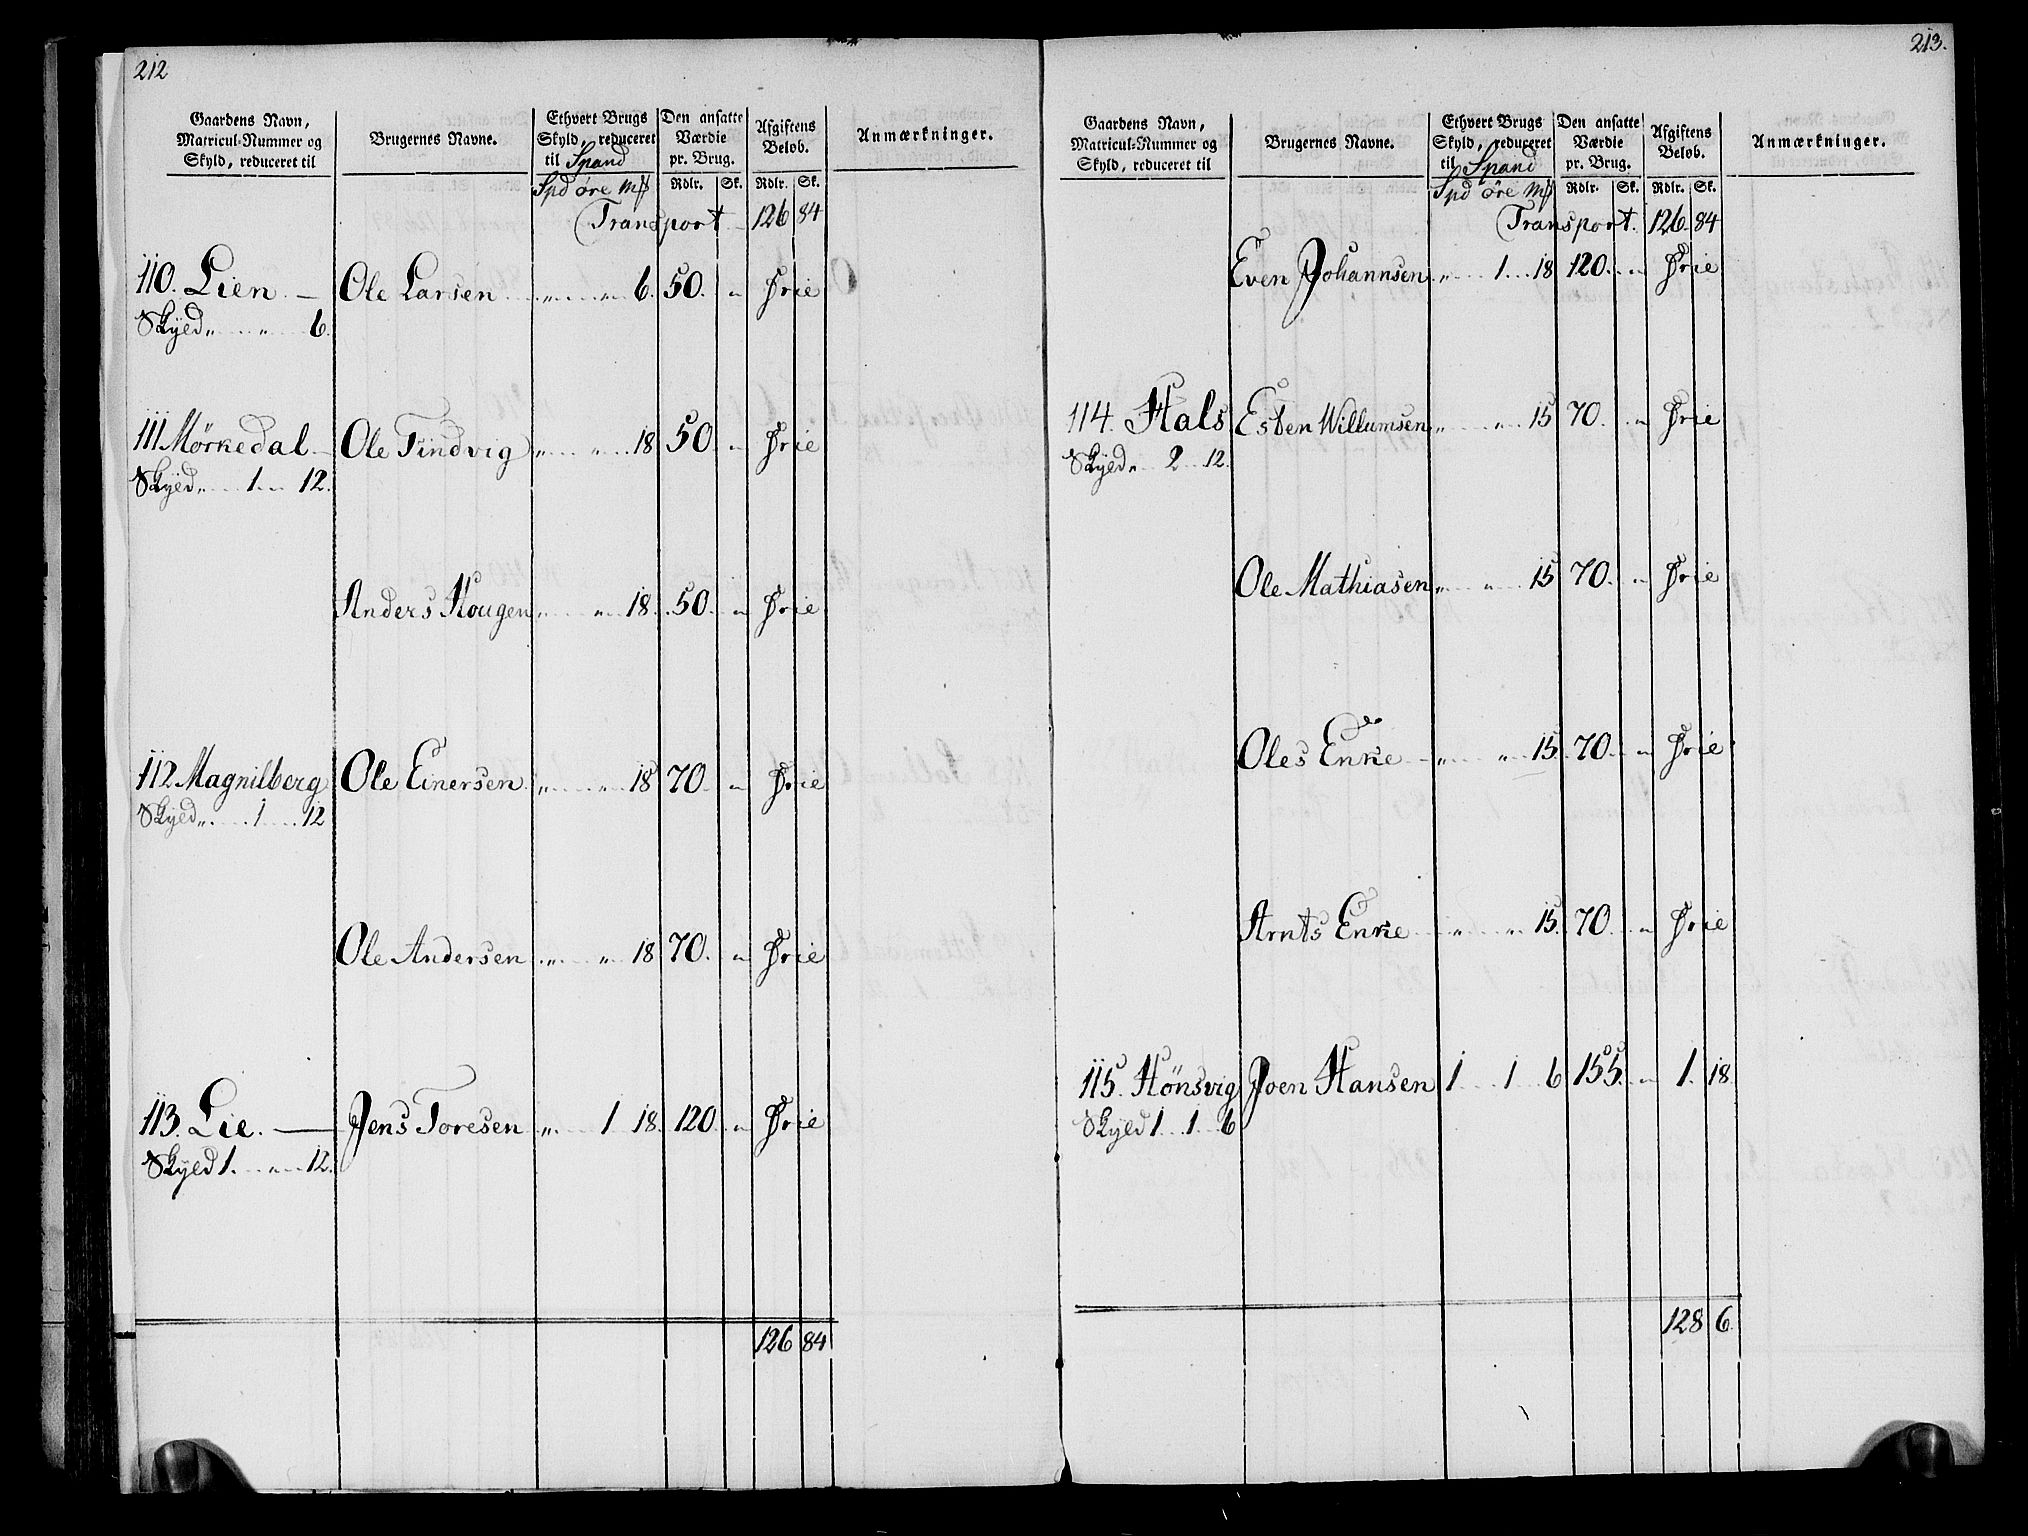 212
Gaardens Navn, Matricul-Nummer og Skyld, reduceret til | Brugernes Navne. | Ethvert Brugs Skyld, reduceret til Spand | Den ansatte Værdie pr. Brug. | Afgiftens Beløb. | Anmærkninger.
Spd øre mȝ | Rdlr. | Sk. | Rdlr. | Sk.
Transport - 126 84
110. Lien — Ole Larsen „ „ 6. 50. „ Frie
Skyld „ „ 6.
111 Mørkedal — Ole Tindvig „ „ 18 50 „ Frie
Skyld „ 1 12.
Anders Hougen „ „ 18. 50. „ Frie
112 Magnilberg Ole Einersen „ „ 18 70 „ Frie
Skyld „ 1 12
Ole Andersen „ „ 18 70. „ Frie
113. Lie. — Jens Toresen „ 1 18. 120. „ Frie
Skyld 1. „ 12.
126 84
213.
Gaardens Navn, Matricul-Nummer og Skyld, reduceret til | Brugernes Navne. | Ethvert Brugs Skyld, reduceret til Spand | Den ansatte Værdie pr. Brug. | Afgiftens Beløb. | Anmærkninger.
Spd øre mȝ | Rdlr. | Sk. | Rdlr. | Sk.
Transport. 126. 84
Even Johannsen „ 1 18 120. „ Frie
114. Hals Esten Willumsen „ „ 15 70. „ Frie
Skyld „ 2 12.
Ole Mathiasen „ „ 15 70. „ Frie
Oles Enke „ „ 15. 70. „ Frie
Arnts Enke „ „ 15. 70. „ Frie
115. Hønsvig Joen Hansen 1 1 6 155. „ 1. 18.
Skyld 1 1 6
128 6.